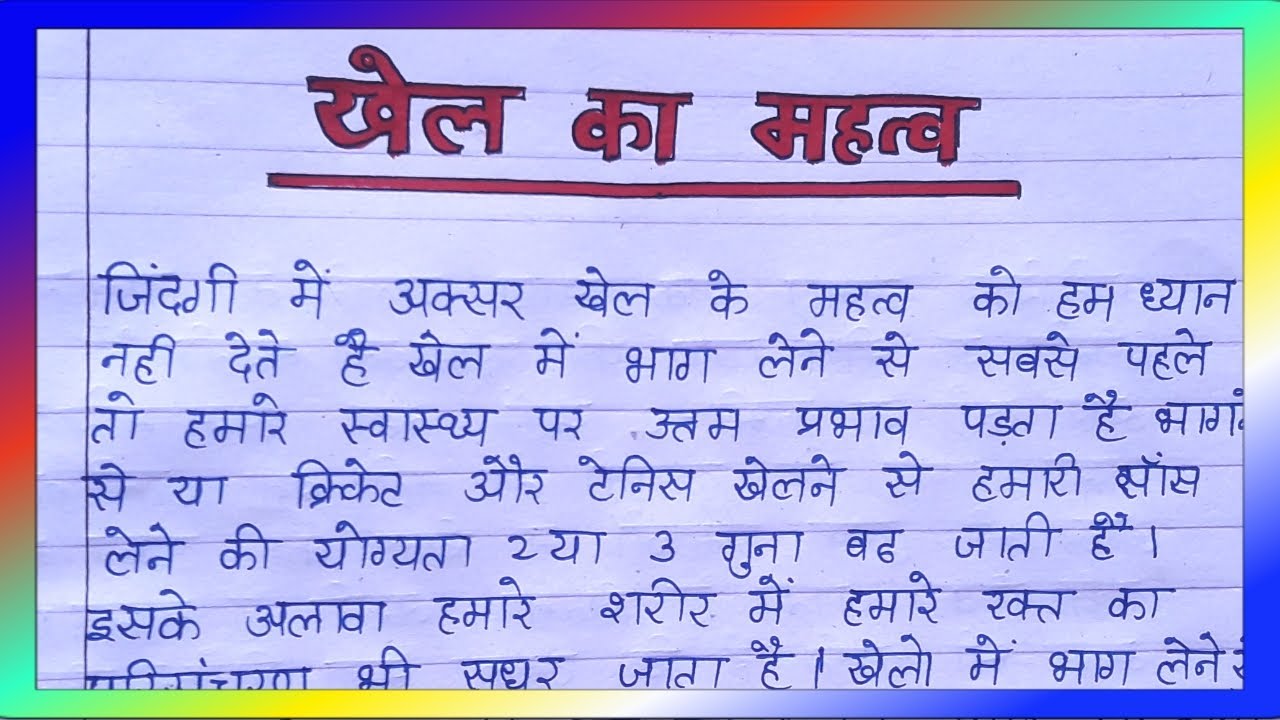 खेल का महत्व
जिंदगी में अक्सर खेल के महत्व को हम ध्यान
नही देते है खेल में भाग लेने से सबसे पहले
तो हमारे स्वास्थ्य पर उत्तम प्रभाव पड़ता है
से या क्रिकेट और टेनिस खेलने से हमारी साँस
लेने की योग्यता 2 या 3 गुना बढ जाती है।
इसके अलावा हमारे शरीर में हमारे रक्त का
भी सुधर जाता है। खेलो में भाग लेने